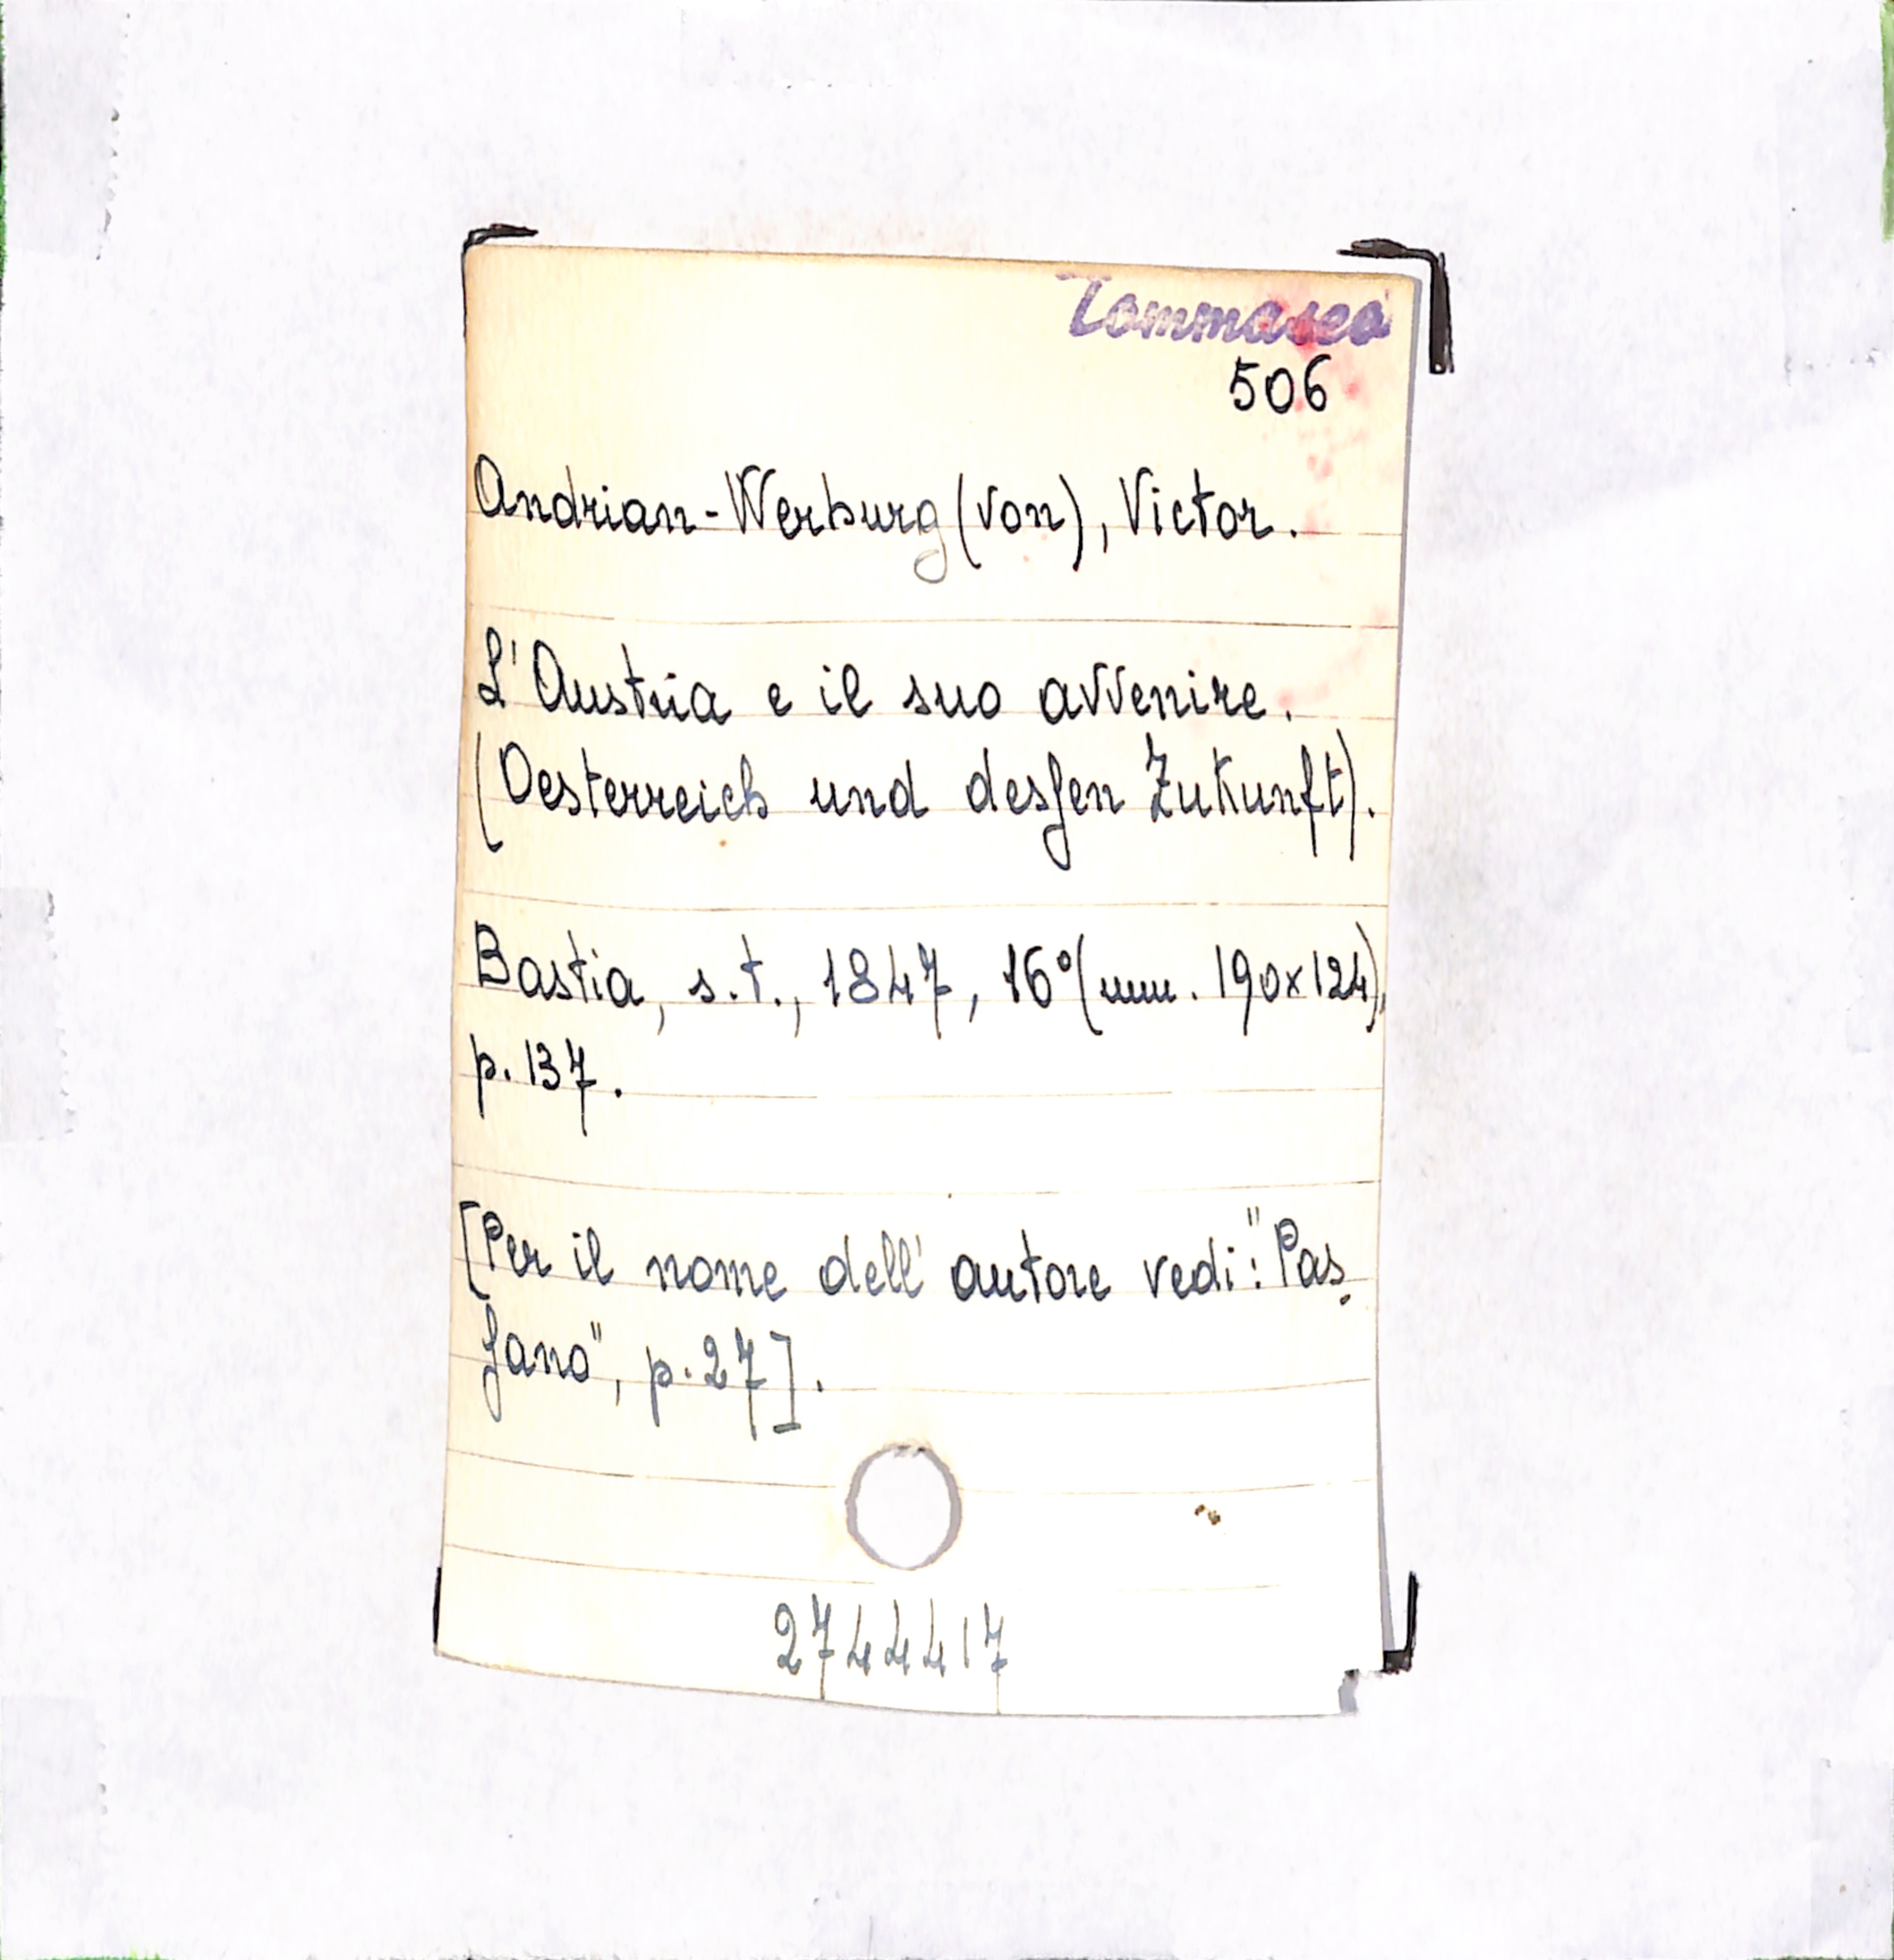 Tommaseo
506
Andrian-Werburg (von), Victor.
L'Austria e il suo avvenire.
(Oesterreich und dessen Zukunft).
Bastia, s.t., 1847, 16° (mm. 190x124),
p. 137.
[Per il nome dell'autore vedi: "Pas
sano", p. 27].
2744417